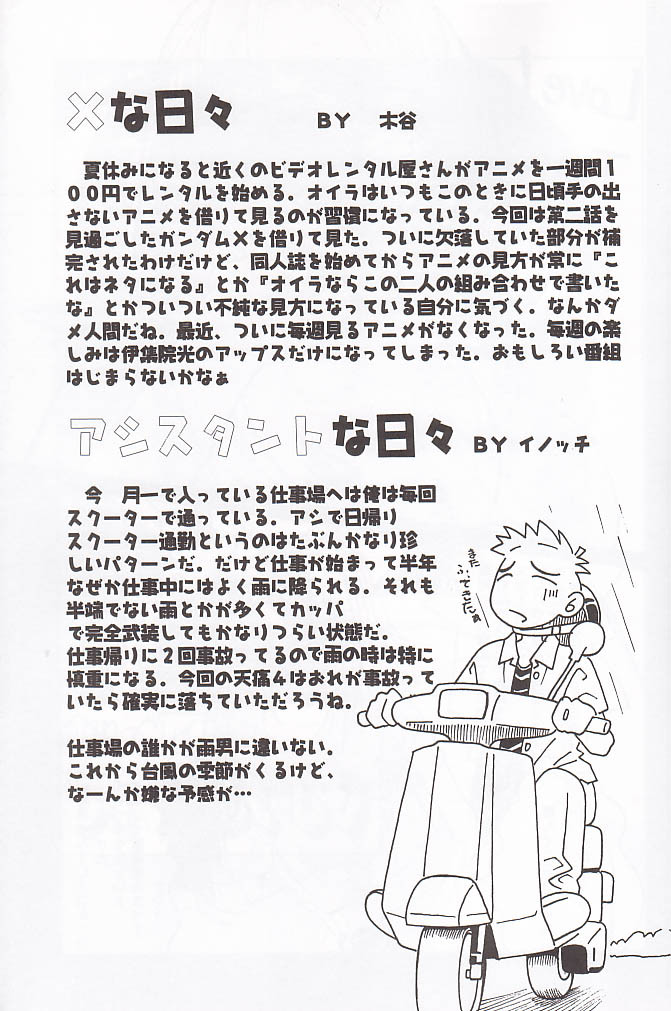 ×な日々 BY 木谷
夏休みになると近くのビデオレンタル屋さんがアニメを一週間１
００円でレンタルを始める。オイラはいつもこのときに日頃手の出
さないアニメを借りて見るのが習慣になっている。今回は第二話を
見過ごしたガンダム×を借りて見た。ついに欠落していた部分が補
完されたわけだけど、同人誌を始めてからアニメの見方が常に『こ
れはネタになる』とか『オイラならこの二人の組み合わせで書いた
な』とかついつい不純な見方になっている自分に気づく。なんかダ
メ人間だね。最近、ついに毎週見るアニメがなくなった。毎週の楽
しみは伊集院光のアップスだけになってしまった。おもしろい番組
はじまらないかなぁ
アシスタントな日々 BY イノッチ
今 月一で入っている仕事場へは俺は毎回
スクーターで通っている。アシで日帰り
スクーター通勤というのはたぶんかなり珍
しいパターンだ。だけど仕事が始まって半年
なぜか仕事中にはよく雨に降られる。それも
半端でない雨とかが多くてカッパ
で完全武装してもかなりつらい状態だ。
仕事帰りに２回事故ってるので雨の時は特に
慎重になる。今回の天痛４はおれが事故って
いたら確実に落ちていただろうね。
仕事場の誰かが雨男に違いない。
これから台風の季節がくるけど、
なーんか嫌な予感が…
また
ふってきたよ
Love